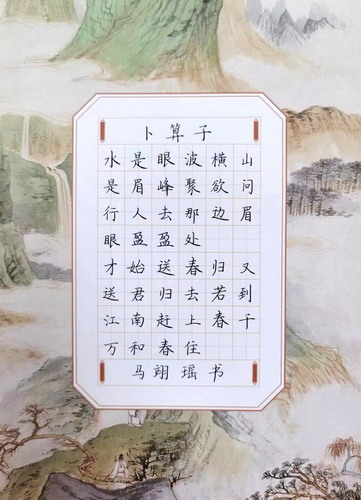 卜算子
水是眼波横山
是眉峰聚欲问
行人去那边眉
眼盈盈处
才始送春归又
送君归去若到
江南赶上春千
万和春住
马翊瑶书